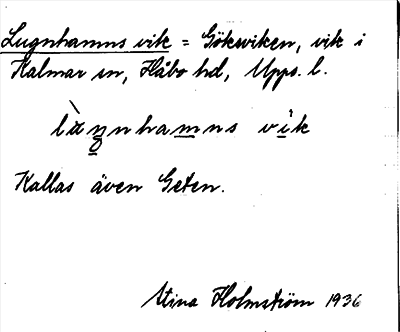 Lugnhamns vik = Gökviken, vik i
Kalmar sn, Håbo hd, Upps. l.
nhamns vik
Kallas även Geten.
Stina Holmström 1936